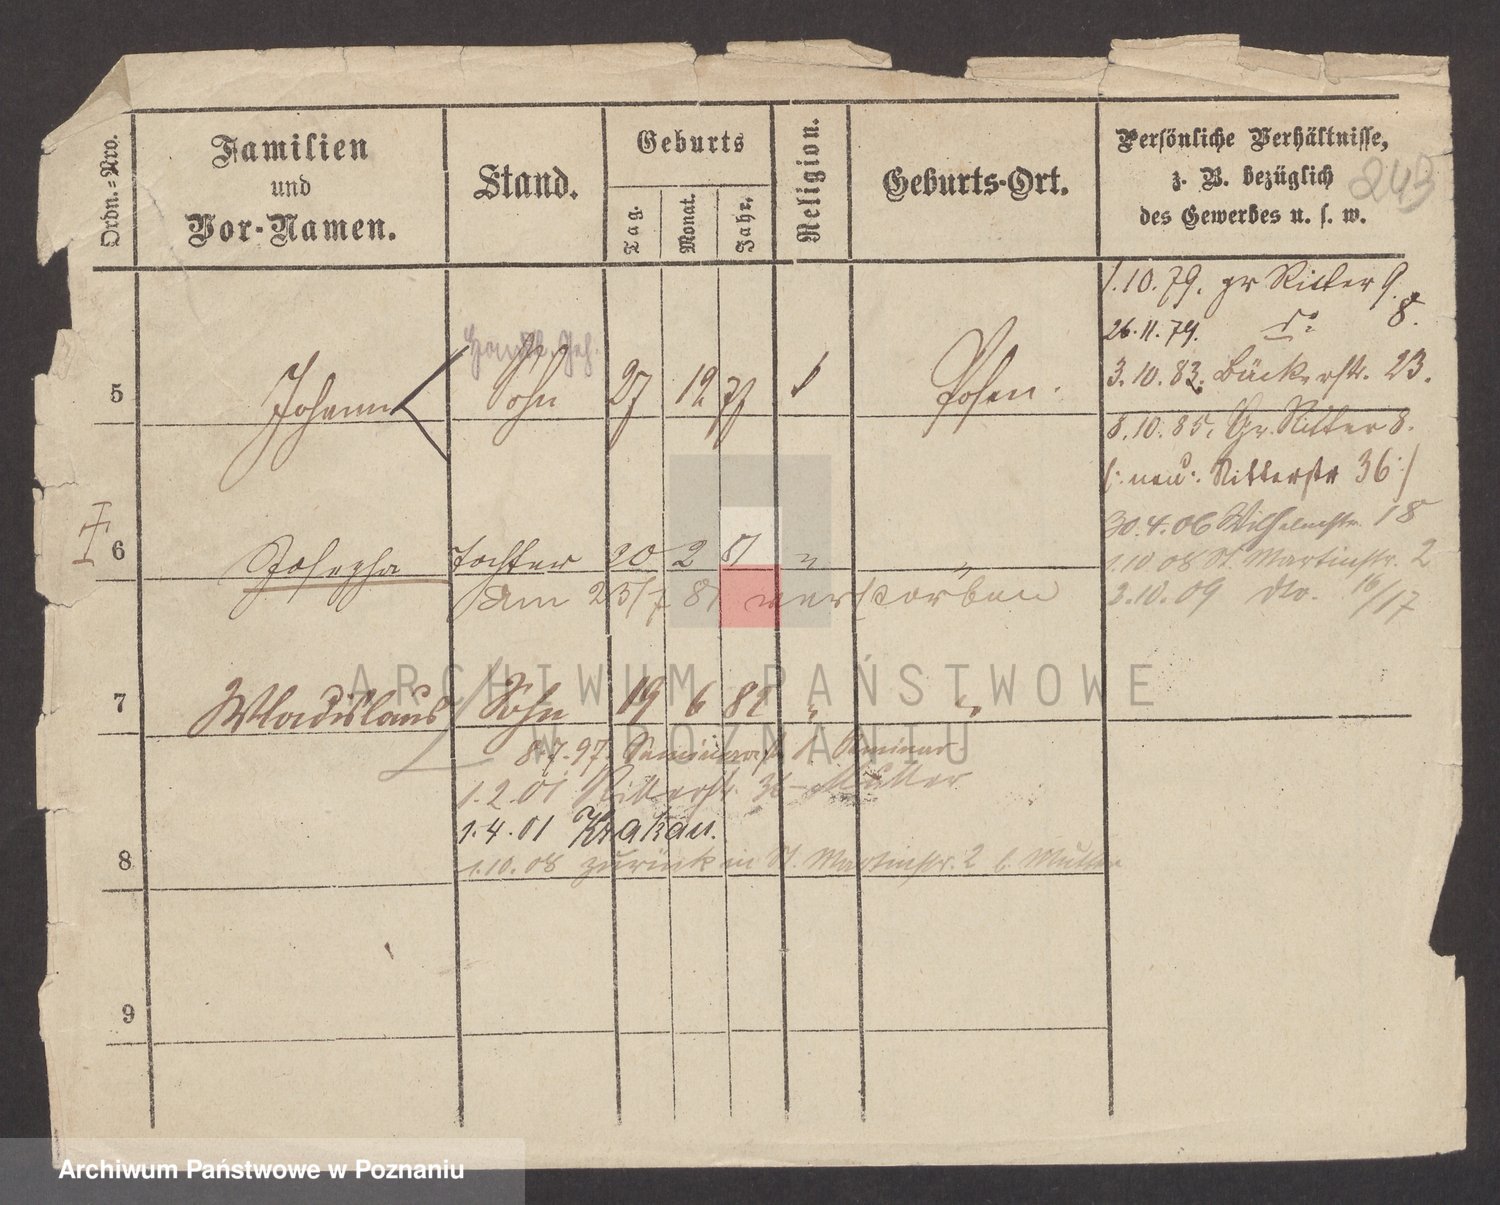 Ordn.=Nro.
Familien
und
Vor-Namen.
Stand.
Geburts
Tag.
Monat.
Jahr.
Religion.
Geburts-Ort.
Persönliche Verhältnisse,
z. B. bezüglich
des Gewerbes u. s. w.
243
1.10.79. gr Ritter 9.
26.11.79. do 8.
3.10.83. Bäckerstr. 23.
5 Johann Sohn 27 12 77 Posen.
8.10.85. Gr. Ritter 8.
(: neu: Ritterstr 36 :)
30.4.06 Wilhelmstr. 18
1.10 08 St. Martinstr. 2
3.10.09 dto. 16/17
6 Josepha Tochter 20 2 81 " "
am 23/7 81 verstorben
7 Wladislaus Sohn 19 6 82 " "
8.7.97. Seminar
1.2.01 Ritterstr. 36 Mutter
1.4.01 Krakau.
8
1.10.08 zurück in St. Martinstr. 2 b. Mutter
9
ARCHIWUM PAŃSTWOWE
W POZNANIU
Archiwum Państwowe w Poznaniu